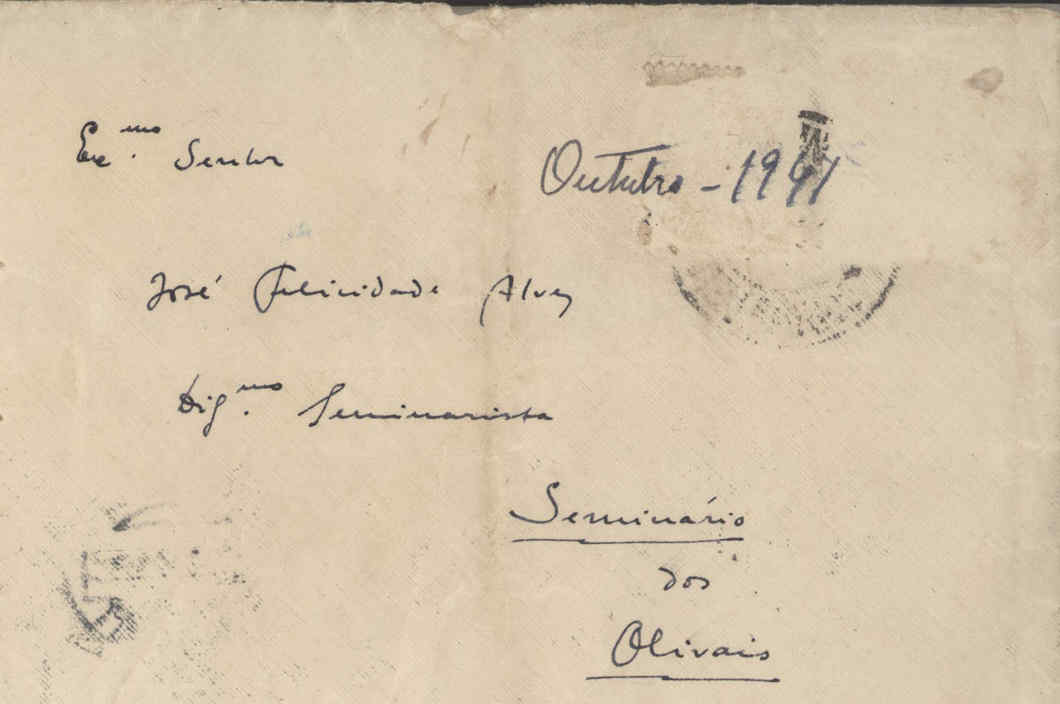 Exc.mo Senhor
Outubro - 1941
José Felicidade Alves
Dig.mo Seminarista
Seminário
dos
Olivais